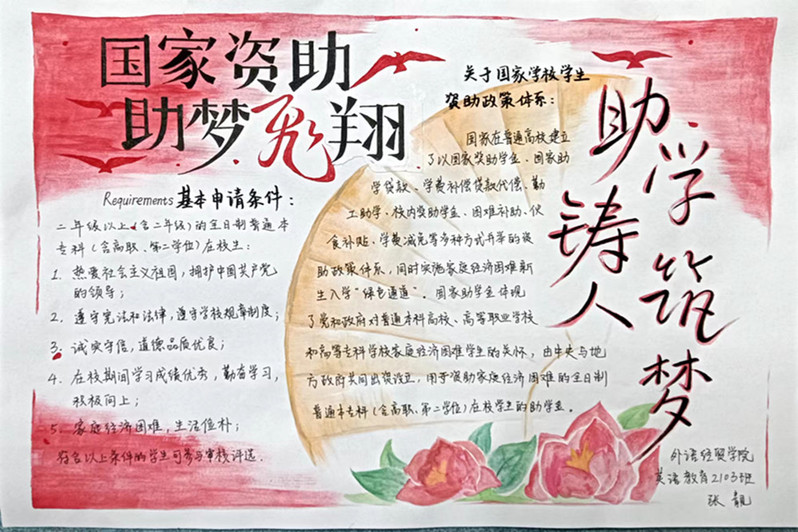 国家资助
助梦飞翔
Requirements 基本申请条件：
二年级以上(含二年级)的全日制普通本
专科(含高职、第二学位)在校生：
1. 热爱社会主义祖国，拥护中国共产党
的领导；
2. 遵守宪法和法律，遵守学校规章制度；
3. 诚实守信，道德品质优良；
4. 在校期间学习成绩优秀，勤奋学习，
积极向上；
5. 家庭经济困难，生活俭朴；
符合以上条件的学生可参与审核评选.
关于国家学校学生
资助政策体系：
国家在普通高校建立
了以国家奖助学金、国家助
学贷款、学费补偿贷款代偿、勤
工助学、校内奖助学金、困难补助、伙
食补贴、学费减免等多种方式并举的资
助政策体系，同时实施家庭经济困难新
生入学“绿色通道”。国家助学金体现
了党和政府对普通本科高校、高等职业学校
和高等专科学校家庭经济困难学生的关怀，由中央与地
方政府共同出资设立，用于资助家庭经济困难的全日制
普通本专科(含高职、第二学位)在校学生的助学金。
助学筑梦
铸人
外语经贸学院
英语教育2103班
张靓